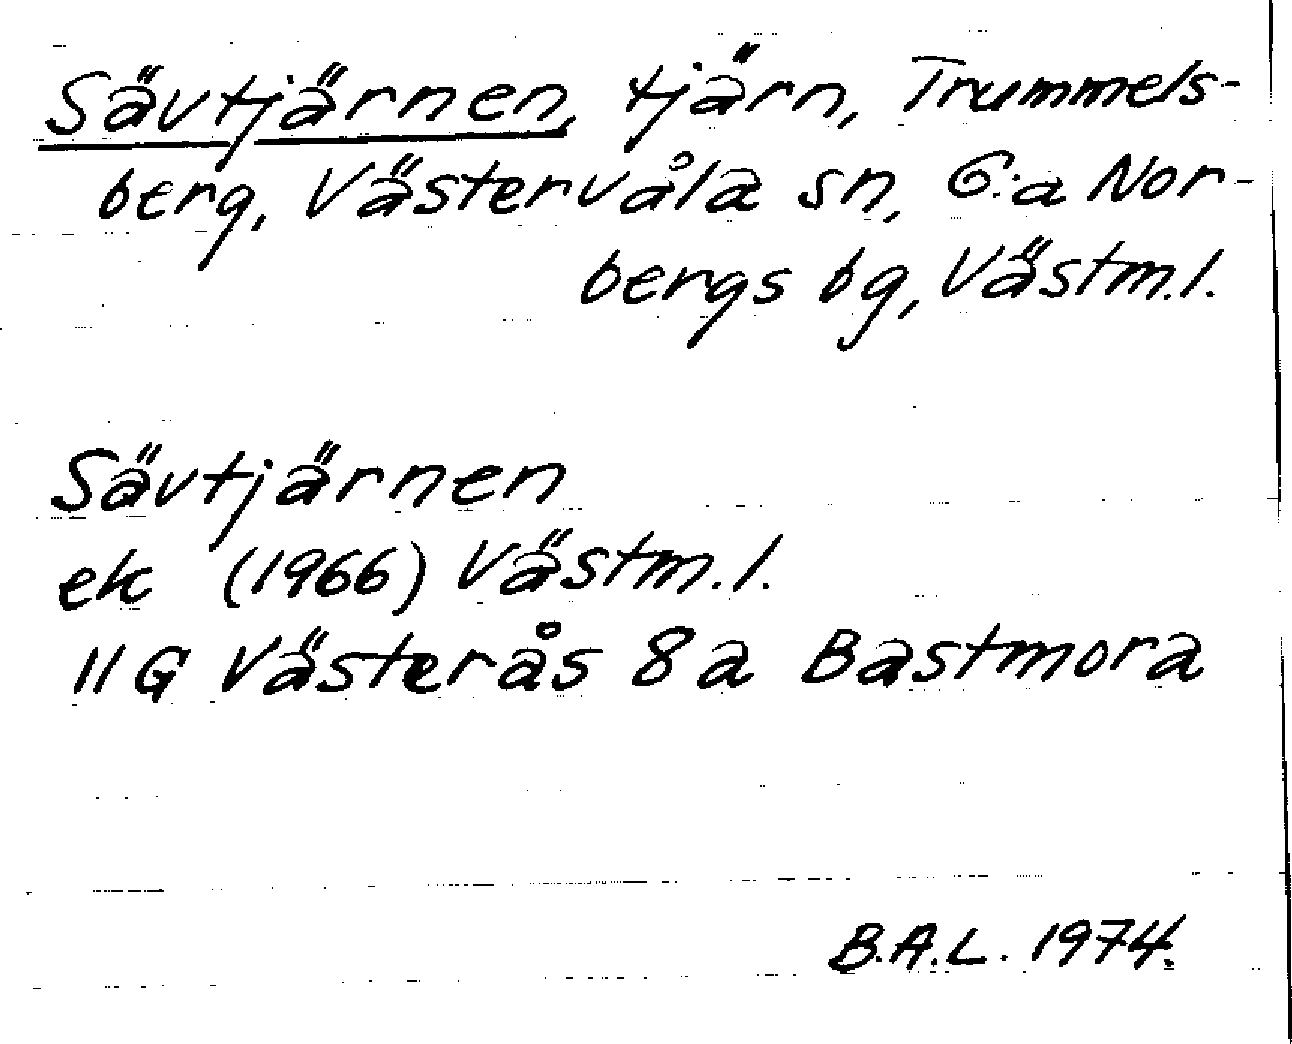 Sävtjärnen, tjärn, Trummels-
berg, Västervåla sn, G:a Nor-
bergs bg, Västm.l.
Sävtjärnen
ek (1966) Västm.l.
11G Västerås 8a Bastmora
B.A.L. 1974.